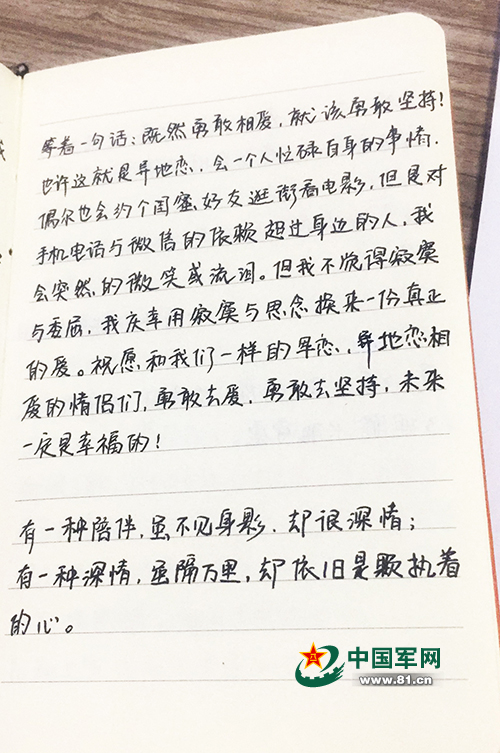 写着一句话：既然勇敢相爱，就该勇敢坚持！
也许这就是异地恋，会一个人忙碌自身的事情，
偶尔也会约个闺蜜、好友逛街看电影，但是对
手机电话与微信的依赖超过身边的人，我
会突然的微笑或流泪。但我不觉得寂寞
与委屈，我庆幸用寂寞与思念换来一份真正
的爱。祝愿和我们一样的军恋，异地恋相
爱的情侣们，勇敢去爱，勇敢去坚持，未来
一定是幸福的！
有一种陪伴，虽不见身影，却很深情；
有一种深情，虽隔万里，却依旧是颗执着
的心。
中国军网
www.81.cn